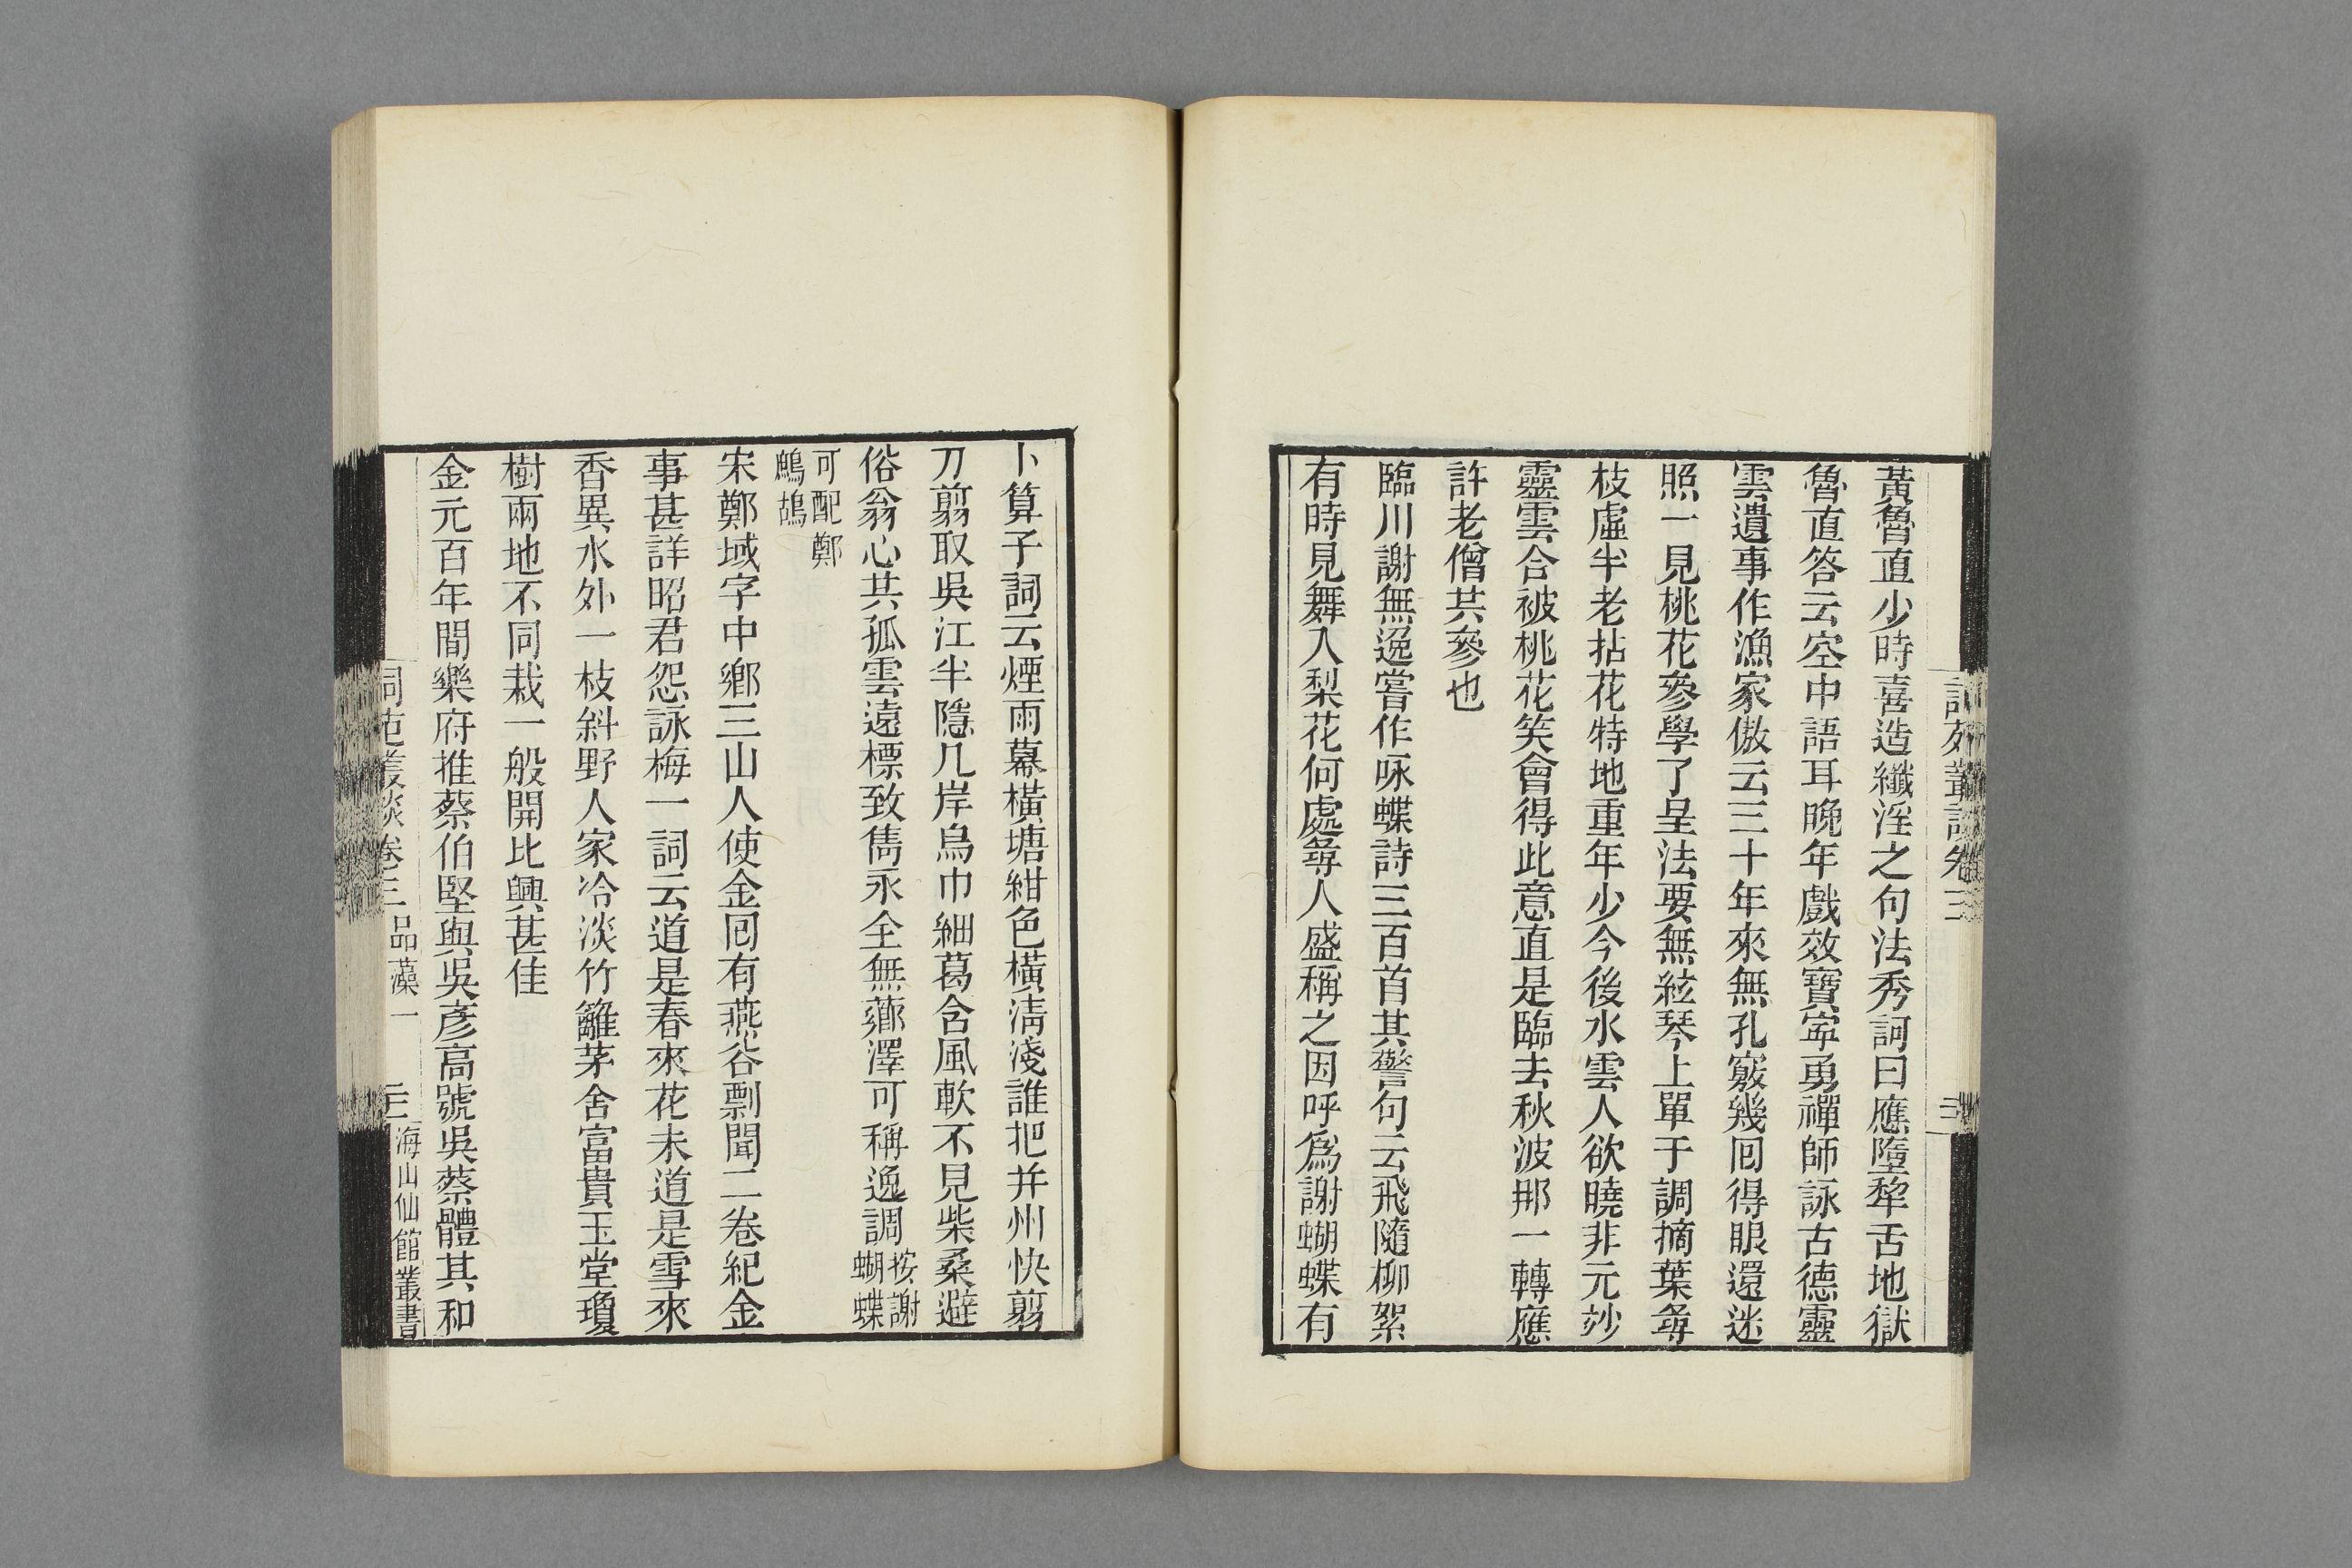 黃魯直少時喜造纖淫之句法秀訶曰應墮犂舌地獄
魯直答云空中語耳晚年戲效寶寧勇禪師詠古德靈
雲遺事作漁家傲云三十年來無孔竅幾囘得眼還迷
照一見桃花參學了呈法要無絃琴上單于調摘葉尋
枝虛半老拈花特地重年少今後水雲人欲曉非元妙
靈雲合被桃花笑會得此意直是臨去秋波那一轉應
許老僧共參也
臨川謝無逸嘗作咏蝶詩三百首其警句云飛隨柳絮
有時見舞入梨花何處尋人盛稱之因呼爲謝蝴蝶有
卜算子詞云煙雨冪橫塘紺色橫淸淺誰把并州快剪
刀剪取吳江半隱几岸烏巾細葛含風軟不見柴桑避
俗翁心共孤雲遠標致雋永全無薌澤可稱逸調按謝蝴蝶
可配鄭鷓鴣
宋鄭域字中鄉三山人使金囘有燕谷剽聞二卷紀金
事甚詳昭君怨詠梅一詞云道是春來花未道是雪來
香異水外一枝斜野人家冷淡竹籬茅舍富貴玉堂瓊
樹兩地不同栽一般開比興甚佳
金元百年間樂府推蔡伯堅與吳彥高號吳蔡體其和
詞苑叢談卷三 品藻一 三 海山仙館叢書